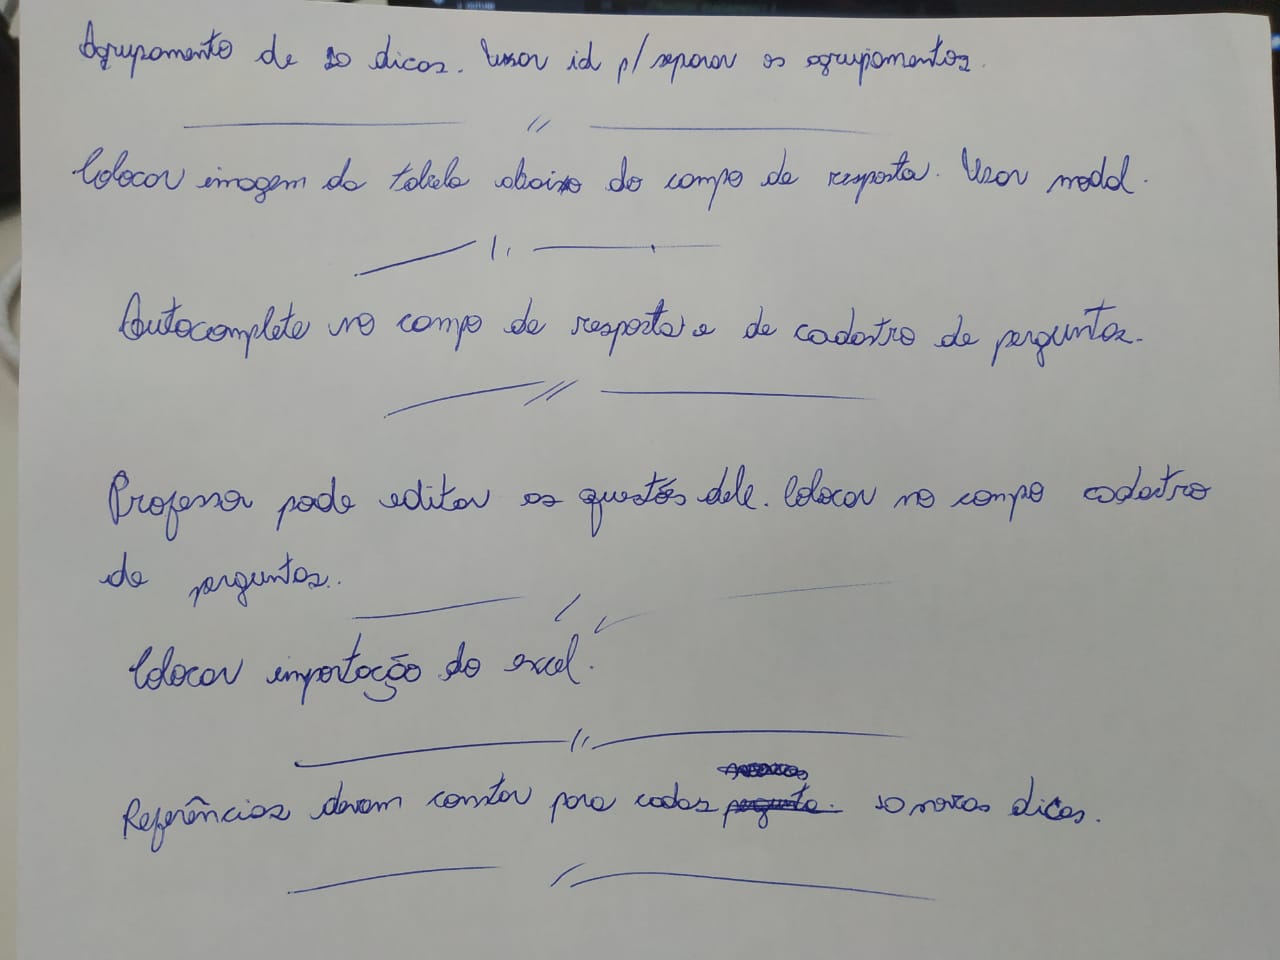 Agrupamento de 10 dicas. Usar id p/ separar os agrupamentos.
Colocar imagem da tabela abaixo do campo de resposta. Usar modal.
Autocomplete no campo de resposta e de cadastro de perguntas.
Professor pode editar as questões dele. Colocar no campo cadastro
de perguntas.
Colocar importação do excel.
Referências devem constar para cadas 10 novas dicas.